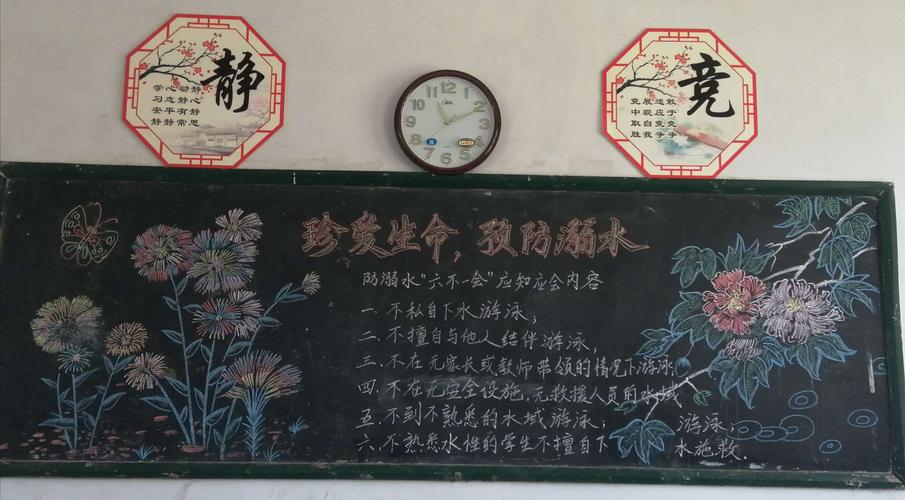 静
学心动静
习态静心
安平有静
静静常思
12
11
1
10
2
9
3
8
4
7
5
6
竞
竞展适敢
中现应于
取自竞竞
胜我争争
珍爱生命,预防溺水
防溺水"六不一会"应知应会内容
一.不私自下水游泳;
二.不擅自与他人结伴游泳,
三.不在无家长或教师带领的情况下游泳;
四.不在无安全设施,无救援人员的水域
游泳;
五.不到不熟悉的水域游泳;
六.不熟悉水性的学生不擅自下
水施救.